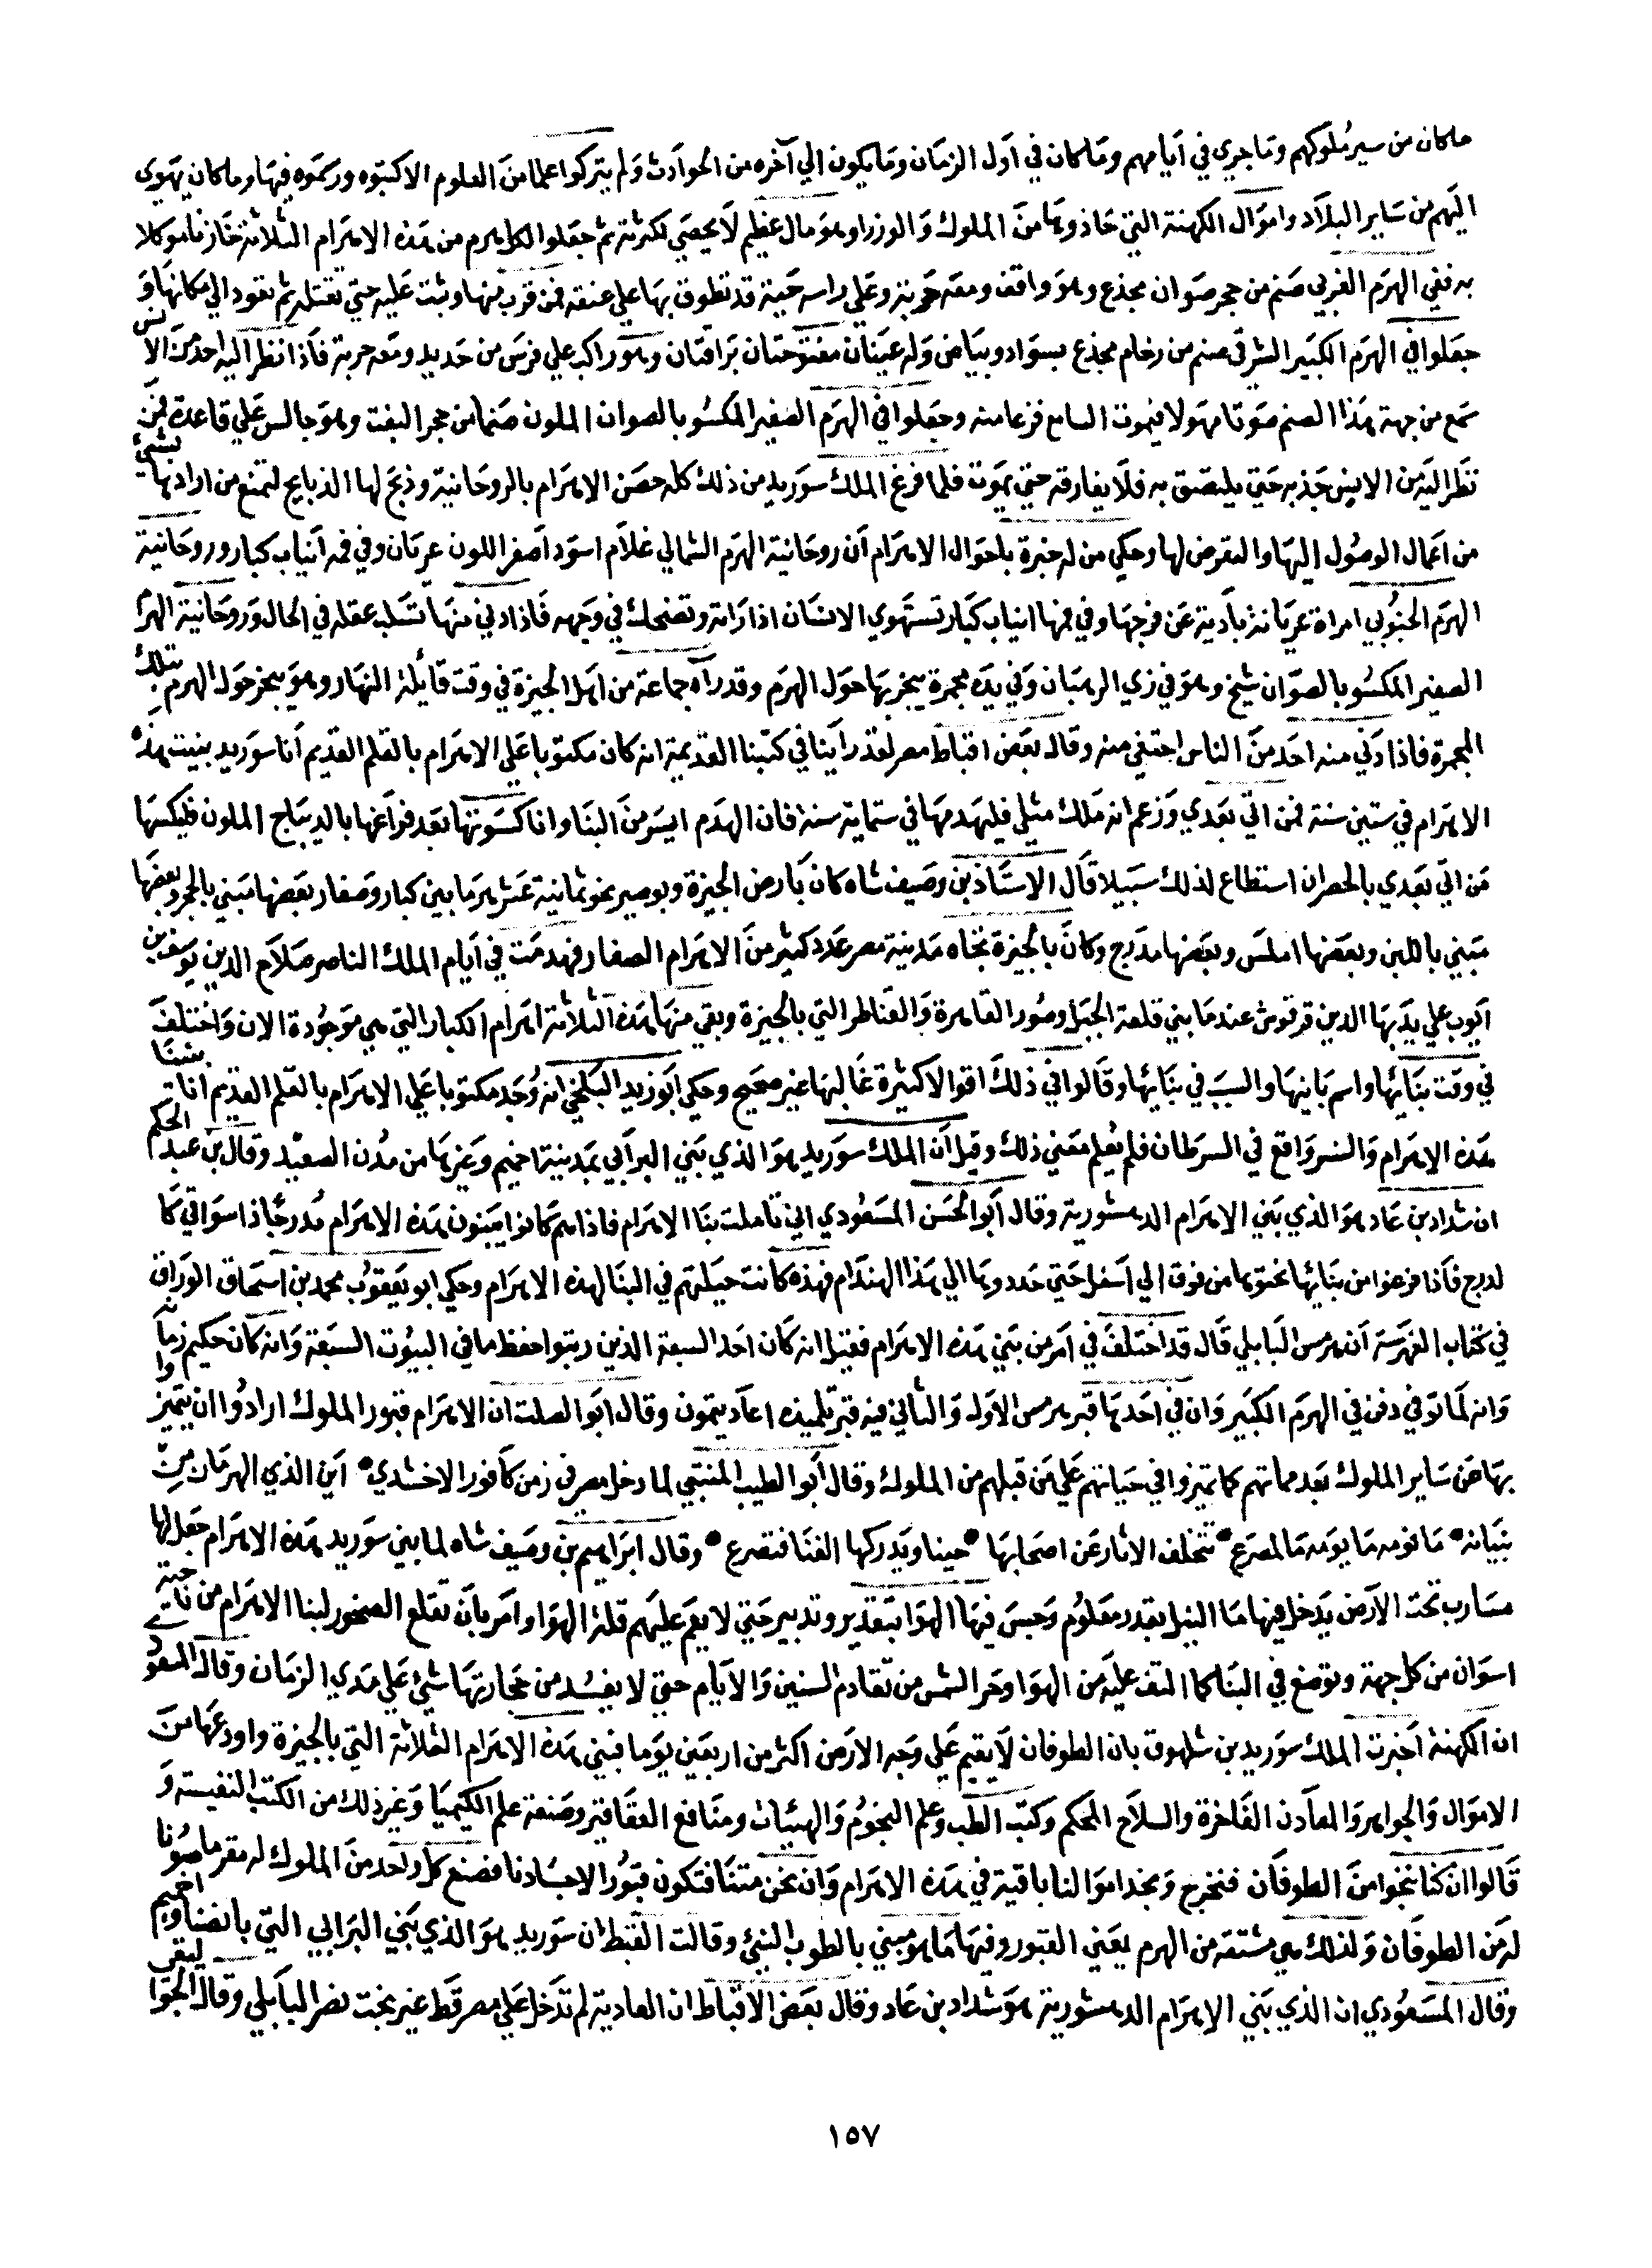 ماكان من سير ملوكهم وما جري في أيامهم وماكان في أول الزمان وما يكون الي آخره من الحوادث ولم يتركوا علما من العلوم الا كتبوه ورسموه فيها وماكان يهوي
اليهم من ساير البلاد واموال الكهنة التي حاذوها من الملوك والوزرا وهو مال عظيم لا يحصي لكثرته ثم جعلوا لكل هرم من هذه الاهرام الثلاثة خازنا موكلا
به ففي الهرم الغربي صنم من حجر صوان مجذع وهو واقف ومعه حربة وعلي راسه حية قد تطوق بها علي عنقه فمن قرب منها وثبت عليه حتي تقتله ثم تعود الي مكانها و
جعلوا في الهرم الكبير الشرقي صنم من رخام مجذع بسواد وبياض وله عينان مفتوحتان براقتان وهو راكب علي فرس من حديد ومعه حربة فاذا نظر اليه احد من الانس
سمع من جهة هذا الصنم صوتا مهولا فيموت السامع فزعا منه وجعلوا في الهرم الصغير المكسو بالصوان الملون صنما من حجر البفت وهو جالس علي قاعدة فمن
نظر اليه من الانس جذبه حتي يلتصق به فلا يفارقه حتي يموت فلما فرغ الملك سوريد من ذلك كله حصن الاهرام بالروحانية وذبح لها الذبايح لتمنع من ارادها بشئ
من اعمال الوصول اليها والتعرض لها وحكي من له خبرة باحوال الاهرام أن روحانية الهرم الشمالي غلام اسود أصفر اللون عريان وفي فمه أنياب كبار وروحانية
الهرم الجنوبي امراة عريانة بادية عن فرجها وفي فمها انياب كبار تستهوي الانسان اذا راته وتضحك في وجهه فاذا دني منها تسلبه عقله في الحال وروحانية الهرم
الصغير المكسو بالصوان شيخ وهو في زي الرهبان وفي يده مجمرة يبخر بها حول الهرم وقد رآه جماعة من اهل الجيزة في وقت قايلة النهار وهو يبخر حول الهرم بتلك
المجمرة فاذا دني منه احد من الناس اختفي منه وقال بعض اقباط مصر لقد راينا في كتبنا القديمة انه كان مكتوبا علي الاهرام بالقلم القديم أنا سوريد بنيت هذه
الاهرام في ستين سنة فمن اتي بعدي وزعم انه ملك مثلي فليهدمها في ستماية سنة فان الهدم ايسر من البنا وانا كسوتها بعد فراغها بالديباج الملون فليكسها
من اتي بعدي بالحصر ان استطاع لذلك سبيلا قال الاستاذ بن وصيف شاه كان بارض الجيزة وبوصير نحو ثمانية عشر هرما بين كبار وصغار بعضها مبني بالحجر وبعضها
مبني باللبن وبعضها املس وبعضها مدرج وكان بالجيزة تجاه مدينة مصر عدد كثير من الاهرام الصغار فهدمت في أيام الملك الناصر صلاح الدين يوسف بن
أيوب علي يد بها الدين قرقوش عند ما بني قلعة الجبل وصور القاهرة والقناطر التي بالجيزة وبقي منها هذه الثلاثة اهرام الكبار التي هي موجودة الان واختلف
في وقت بنائها واسم بانيها والسبب في بنائها وقالوا في ذلك اقوالا كثيرة غالبها غير صحيح وحكي ابو زيد البلخي انه وُجد مكتوبا علي الاهرام بالقلم القديم انا بنينا
هذه الاهرام والنسر واقع في السرطان فلم يُعلم معني ذلك وقيل أن الملك سوريد هو الذي بني البرابي بمدينة اخميم وغيرها من مدن الصعيد وقال بن عبد الحكم
ان شداد بن عاد هو الذي بني الاهرام الدهشورية وقال أبو الحسن المسعودي اني تاملت بنا الاهرام فاذا هم كانوا يبنون هذه الاهرام مدرجا ذا سواقي كا
لدرج فاذا فرغوا من بنائها نحتوها من فوق الي أسفل حتي حددوها الي هذا الهندام فهذه كانت حيلتهم في البنا لهذه الاهرام وحكي ابو يعقوب محمد بن اسحاق الوراق
في كتاب الفهرسة أن هرمس البابلي قال قد اختلف في امر من بني هذه الاهرام فقيل انه كان احد السبعة الذين رتبوا حفظ ما في البيوت السبعة وانه كان حكيم زمانه
وانه لما توفي دفن في الهرم الكبير وان في احدها قبر هرمس الاول والثاني فيه قبر تلميذه اعاديتمون وقال ابو الصلت ان الاهرام قبور الملوك ارادوا ان يتميزوا
بها عن ساير الملوك بعد مماتهم كما تميزوا في حياتهم علي من قبلهم من الملوك وقال أبو الطيب المتنبي لما دخل مصر في زمن كافور الاخشدي • اين الذي الهرمان من
بنيانه • ما قومه ما يومه ما المصرع • تتخلف الاثار عن اصحابها • حينا ويدركها الفنا فتصرع • وقال ابراهيم بن وصيف شاه لما بني سوريد هذه الاهرام جعل لها
مسارب تحت الارض يدخل فيها ما النيل بقدر معلوم وحبس فيها الهوا بتقدير وتدبير حتي لا يعم عليهم قلة الهوا وامر بأن تقلع الصخور لبنا الاهرام من ناحية
اسوان من كل جهة وتوضع في البنا كما التف عليه من الهوا وحر الشمس من تقادم السنين والايام حتي لا يفسد من حجارتها شئ علي مدي الزمان وقال المسعودي
ان الكهنة اخبرت الملك سوريد بن شلهوق بان الطوفان لا يقيم علي وجه الارض اكثر من اربعين يوما فبني هذه الاهرام الثلاثة التي بالجيزة واودعها من
الاموال والجواهر والمعادن الفاخرة والسلاح المحكم وكتب الطب وعلم النجوم والهيئات ومنافع العقاقير وصنعة علم الكيميا وغير ذلك من الكتب النفيسة و
قالوا ان كنا ننجوا من الطوفان فنخرج ونجد اموالنا باقية في هذه الاهرام وان نحن متنا فتكون قبورا لاجسادنا فصنع كل واحد من الملوك له مقرها صونا
له من الطوفان ولذلك هي مشتقه من الهرم يعني القبور وفيها ما هو مبني بالطوب النيئ وقالت القبط ان سوريد هو الذي بني البرابي التي بانصنا واخميم
وقال المسعودي ان الذي بني الاهرام الدهشورية هو شداد بن عاد وقال بعض الاقباط ان العادية لم تدخل علي مصر قط غير بخت نصر البابلي وقال الجواليقي
١٥٧